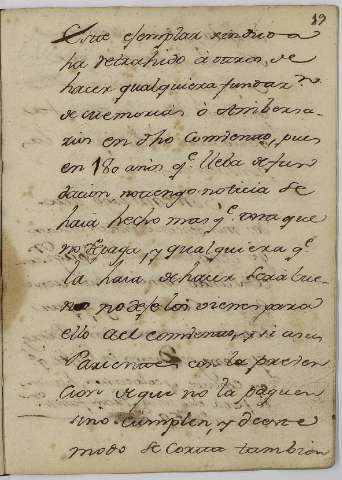 19
Este exemplar sin duda
ha retrahido à otros, de
hacer qualquiera fundaz.n
de memorias ò Anibersa-
rios en dho Comiento, pues
en 180 años q.e lleba de fun
dacion no tengo noticia se
haia hecho mas q.e una que
no paga, y qualquiera q.e
la haia de hacer sera bue-
no no deje los vienes para
ello al comiento, y si a sus
Parientes con la preten
cion de que no la paguen
sino cumplen, y de este
modo se logra tambien